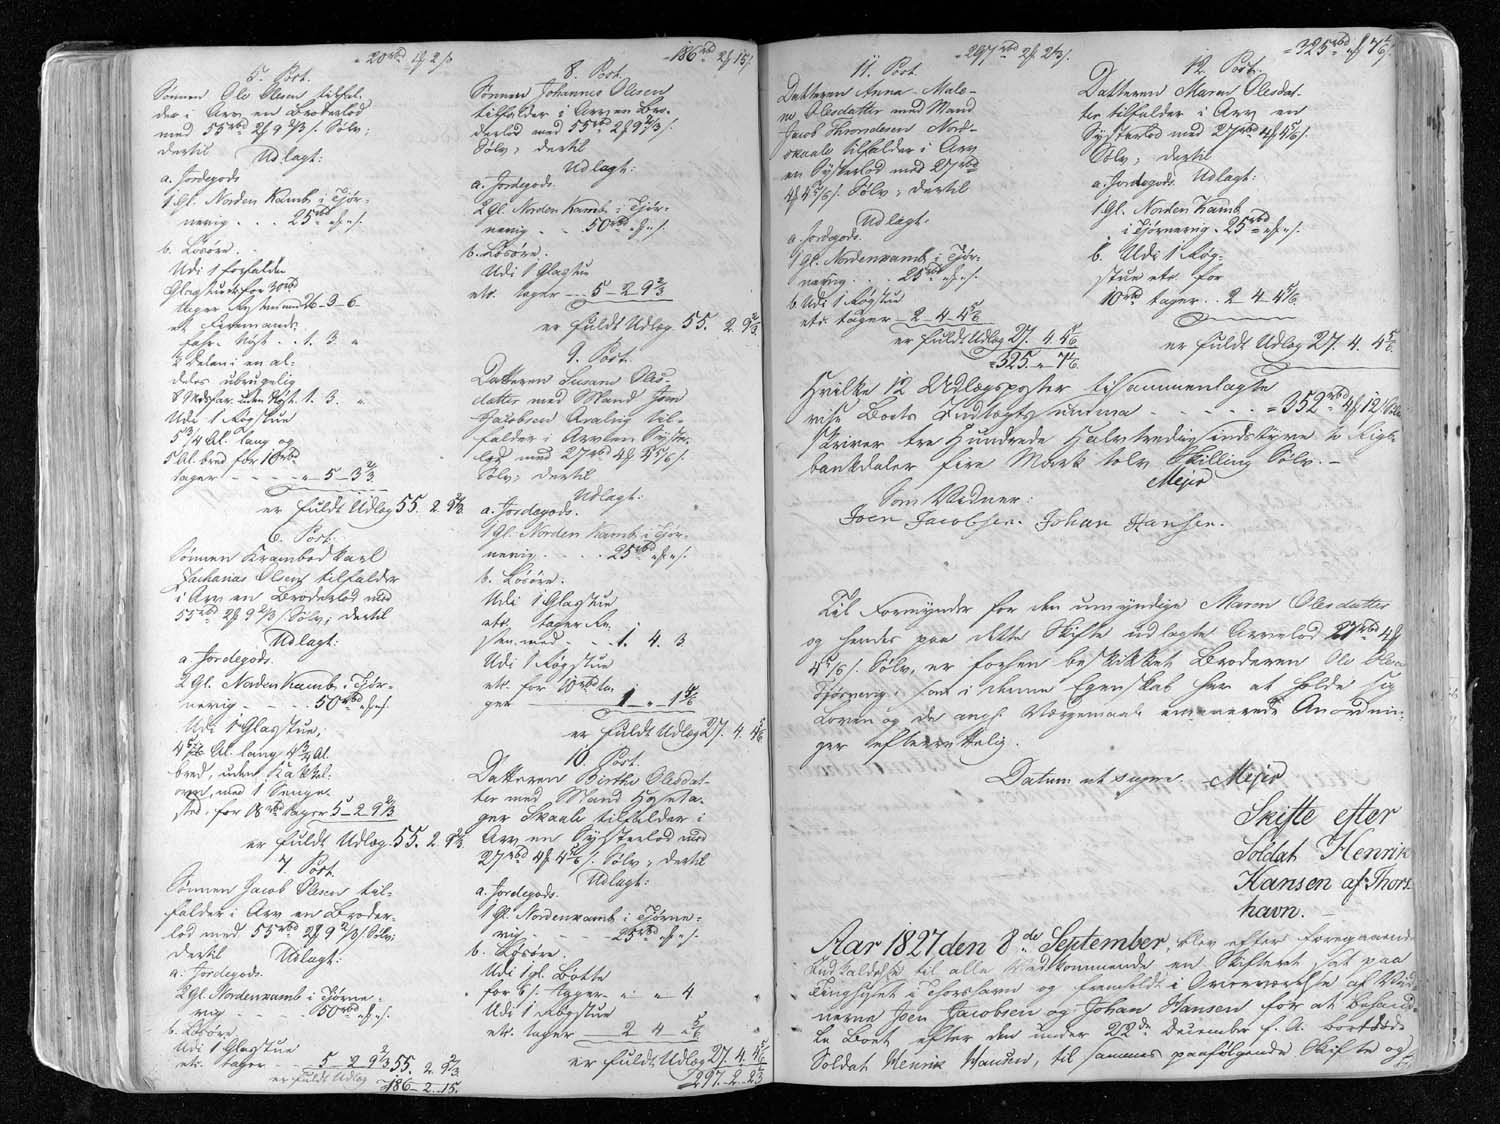 20 rbd 1 ß 2 s
5. Post.
Sønnen Ole Olesen tilfal-
der i Arv en Broderlod
med 55 rbd 2 ß 9 2/3 s. Sølv;
dertil
Udlagt:
a. Jordegods
1 Gl. Norden Kamb i Tjør-
nevig . . . 25 rbd
b. Løsøre.
Udi 1 forfalden
Glasstue for 30 rbd
tager 26-9-6
1. 3. "
i en al-
deles ubrugelig
1. 3. "
Udi 1 Røgstue
5 3/4 Al. lang og
5 Al. bred for 10 rbd
tager - - - - " 5 - 3 2/3
er fuldt Udlæg 55. 2. 9 2/3
6. Post:
Sønnen Krambodkarl
Zacharias Olsen tilfalder
i Arv en Broderlod med
55 rbd 2 ß 9 2/3 s. Sølv; dertil
Udlagt:
a. Jordegods.
2 Gl. Norden Kamb i Tjør-
nevig - - - 50 rbd
Udi 1 Glasstue,
Al. lang 4 3/4 Al.
bred, uden Kakkel-
ovn, med 1 Senge-
sted. for tager 5-2 9 2/3
er fuldt Udlæg. 55. 2. 9 2/3
7. Post.
Sønnen Jacob Olesen til-
falder i Arv en Broder-
lod med 55 rbd 2 ß 9 2/3 s. Sølv;
dertil
Udlagt:
a. Jordegods.
2 Gl. Nordenkamb i Tjørne-
vig - - - 50 rbd
b. Løsøre.
Udi 1 Glasstue
etc. tager - - 5-2 9 2/3
er fuldt Udlæg 55. 2. 9 2/3
186-2-15.
186 rbd 2 ß 15 s
8. Post.
Sønnen Johannes Olesen
tilfalder i Arv en Bro-
derlod med 55 rbd 2 ß 9 2/3 s.
Sølv; dertil
Udlagt:
a. Jordegods.
2 Gl. Norden Kamb i Tjør-
nevig - - 50 rbd
b. Løsøre.
Udi 1 Glasstue
etc. tager - - - 5-2-9 2/3
er fuldt Udlæg 55. 2. 9 2/3
9. Post.
Datteren Susanne Oles-
datter med Mand Joen
Jacobsen til-
falder i Arv en Syster-
lod med 27 rbd 4 ß 4 5/6 s.
Sølv; dertil
Udlagt:
a. Jordegods.
1 Gl. Norden Kamb i Tjør-
nevig. - - . 25 rbd
b. Løsøre.
Udi 1 Glasstue
etc. tager
1. 4. 3.
Udi 1 Røgstue
etc. for 10 rbd ta-
ger - - 1 - " - 1 5/6
er fuldt Udlæg 27. 4. 4 5/6
10. Post.
Datteren Birthe Olesdat-
ter med Mand
Skaale tilfalder i
Arv en Systerlod med
27 rbd 4 ß 4 5/6 s. Sølv; dertil
Udlagt:
a. Jordegods.
1 Gl. Nordenkamb i Tjørne-
vig - - - 25 rbd
b. Løsøre.
Udi 1 gl. Bøtte
for 6 s. tager - " - " 4
Udi 1 Røgstue
etc. tager - - 2 4 " 5/6
er fuldt Udlæg 27. 4. 4 5/6
297-2-2 2/3
297 rbd 2 ß 2 2/3 s.
11. Post
Datteren Anna Male-
ne Olesdatter med Mand
Jacob Thomdesen Nord-
skaale tilfalder i Arv
en Systerlod med 27 rbd
4 ß 4 5/6 s. Sølv; dertil
Udlagt
a. Jordegods.
1 Gl. Nordenkamb i Tjør-
nevig - - 25 rbd
b Udi 1 Røgstue
etc. tager - 2-4-4 5/6
er fuldt Udlæg 27. 4. 4 5/6
325. " 7 4/6
325 rbd " ß 7 4/6 s.
12. Post.
Datteren Maren Olesdat-
ter tilfalder i Arv en
Systerlod med 27 rbd 4 ß 4 5/6 s.
Sølv; dertil
a. Jordegods. Udlagt:
1 Gl. Norden Kamb
i Tjørnevig. 25 rbd
b. Udi 1 Røg-
stue etc. for
10 rbd tager . . 2 4 4 5/6
er fuldt Udlæg 27. 4. 4 5/6
Hvilke 12 Udlægsposter tilsammenlagte
vise Boets Indtægtssumma - - - - - = 352 rbd 4 ß 12 s.
skriver tre Hundrede Halvtredsindstyve to Rigs-
bankdaler fire Mark tolv Skilling Sølv. -
Mejer
Som Vidner:
Joen Jacobsen. Johan Hansen.
Til Formynder for den umyndige Maren Olesdatter
og hendes paa dette Skifte udlagte Arvelod 27 rbd 4 ß
4 5/6 s. Sølv, er forhen beskikket Broderen Ole Olesen
Tjørnevig; som i denne Egenskab har at holde sig
Loven og de angl. Værgemaale emanerede Anordnin-
ger efterrettelig.
Datum ut supra. Mejer
Skifte efter
Soldat Henrik
Hansen af Thors-
havn.
Aar 1827 den 8de September, blev efter foregaaende
Indkaldelse til alle Vedkommende en Skifteret, sat paa
Tinghuset i Thorshavn og fremholdt i Overværelse af Vid-
nerne Joen Jacobsen og Johan Hansen for at behand-
le Boet efter den under 22de December f. A. bortdøde
Soldat Henrik Hansen, til sammes paafølgende Skifte og